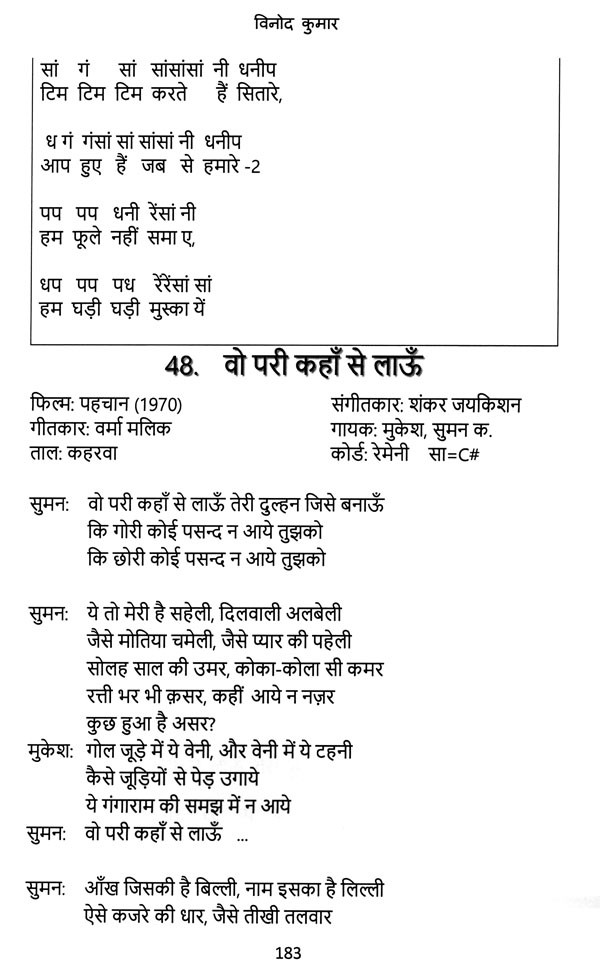 विनोद कुमार
सां गं सां सांसांसां नी धनीप
टिम टिम टिम करते हैं सितारे,
ध गं गंसां सां सांसां नी धनीप
आप हुए हैं जब से हमारे -2
पप पप धनी रेंसां नी
हम फूले नहीं समा ए,
धप पप पध रेंरेंसां सां
हम घड़ी घड़ी मुस्का यें
48. वो परी कहाँ से लाऊँ
फिल्म: पहचान (1970) संगीतकार: शंकर जयकिशन
गीतकार: वर्मा मलिक गायक: मुकेश, सुमन क.
ताल: कहरवा कोर्ड: रेमेनी सा=C#
सुमन: वो परी कहाँ से लाऊँ तेरी दुल्हन जिसे बनाऊँ
कि गोरी कोई पसन्द न आये तुझको
कि छोरी कोई पसन्द न आये तुझको
सुमन: ये तो मेरी है सहेली, दिलवाली अलबेली
जैसे मोतिया चमेली, जैसे प्यार की पहेली
सोलह साल की उमर, कोका-कोला सी कमर
रत्ती भर भी क़सर, कहीं आये न नज़र
कुछ हुआ है असर?
मुकेश: गोल जूड़े में ये वेनी, और वेनी में ये टहनी
कैसे जूड़ियों से पेड़ उगाये
ये गंगाराम की समझ में न आये
सुमन: वो परी कहाँ से लाऊँ ...
सुमन: आँख जिसकी है बिल्ली, नाम इसका है लिल्ली
ऐसे कजरे की धार, जैसे तीखी तलवार
183